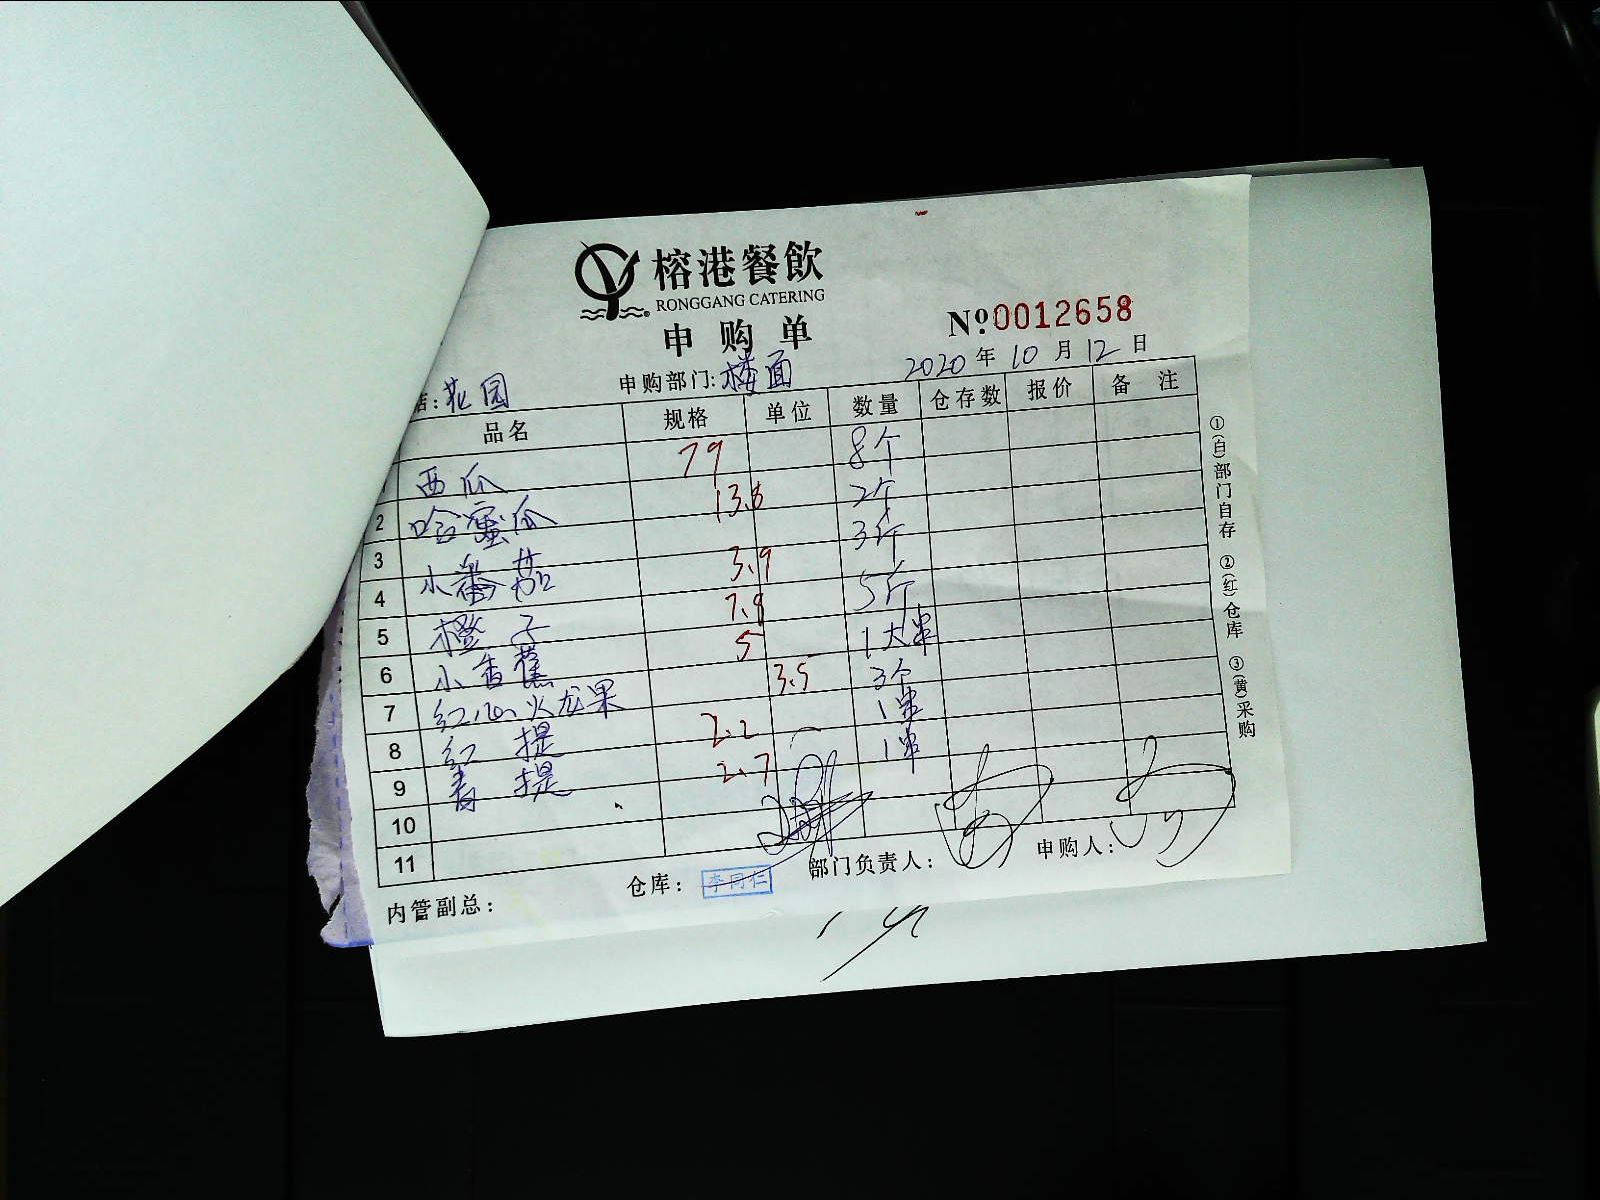 榕港餐飲
RONGGANG CATERING
申购单
Nº0012658
店:花园 申购部门:楼面 2020年10月12日
品名 规格 单位 数量 仓存数 报价 备注
西瓜 79 8个
2 哈蜜瓜 13.8 2个
3 小番茄 3.9 3斤
4 橙子 7.9 5斤
5 小香蕉 5 1大串
6 红心火龙果 3.5 3个
7 红提 2.2 1串
8 青提 2.7 1串
9
10
11
内管副总: 仓库: 李同仁 部门负责人: 申购人:
①(白)部门自存 ②(红)仓库 ③(黄)采购